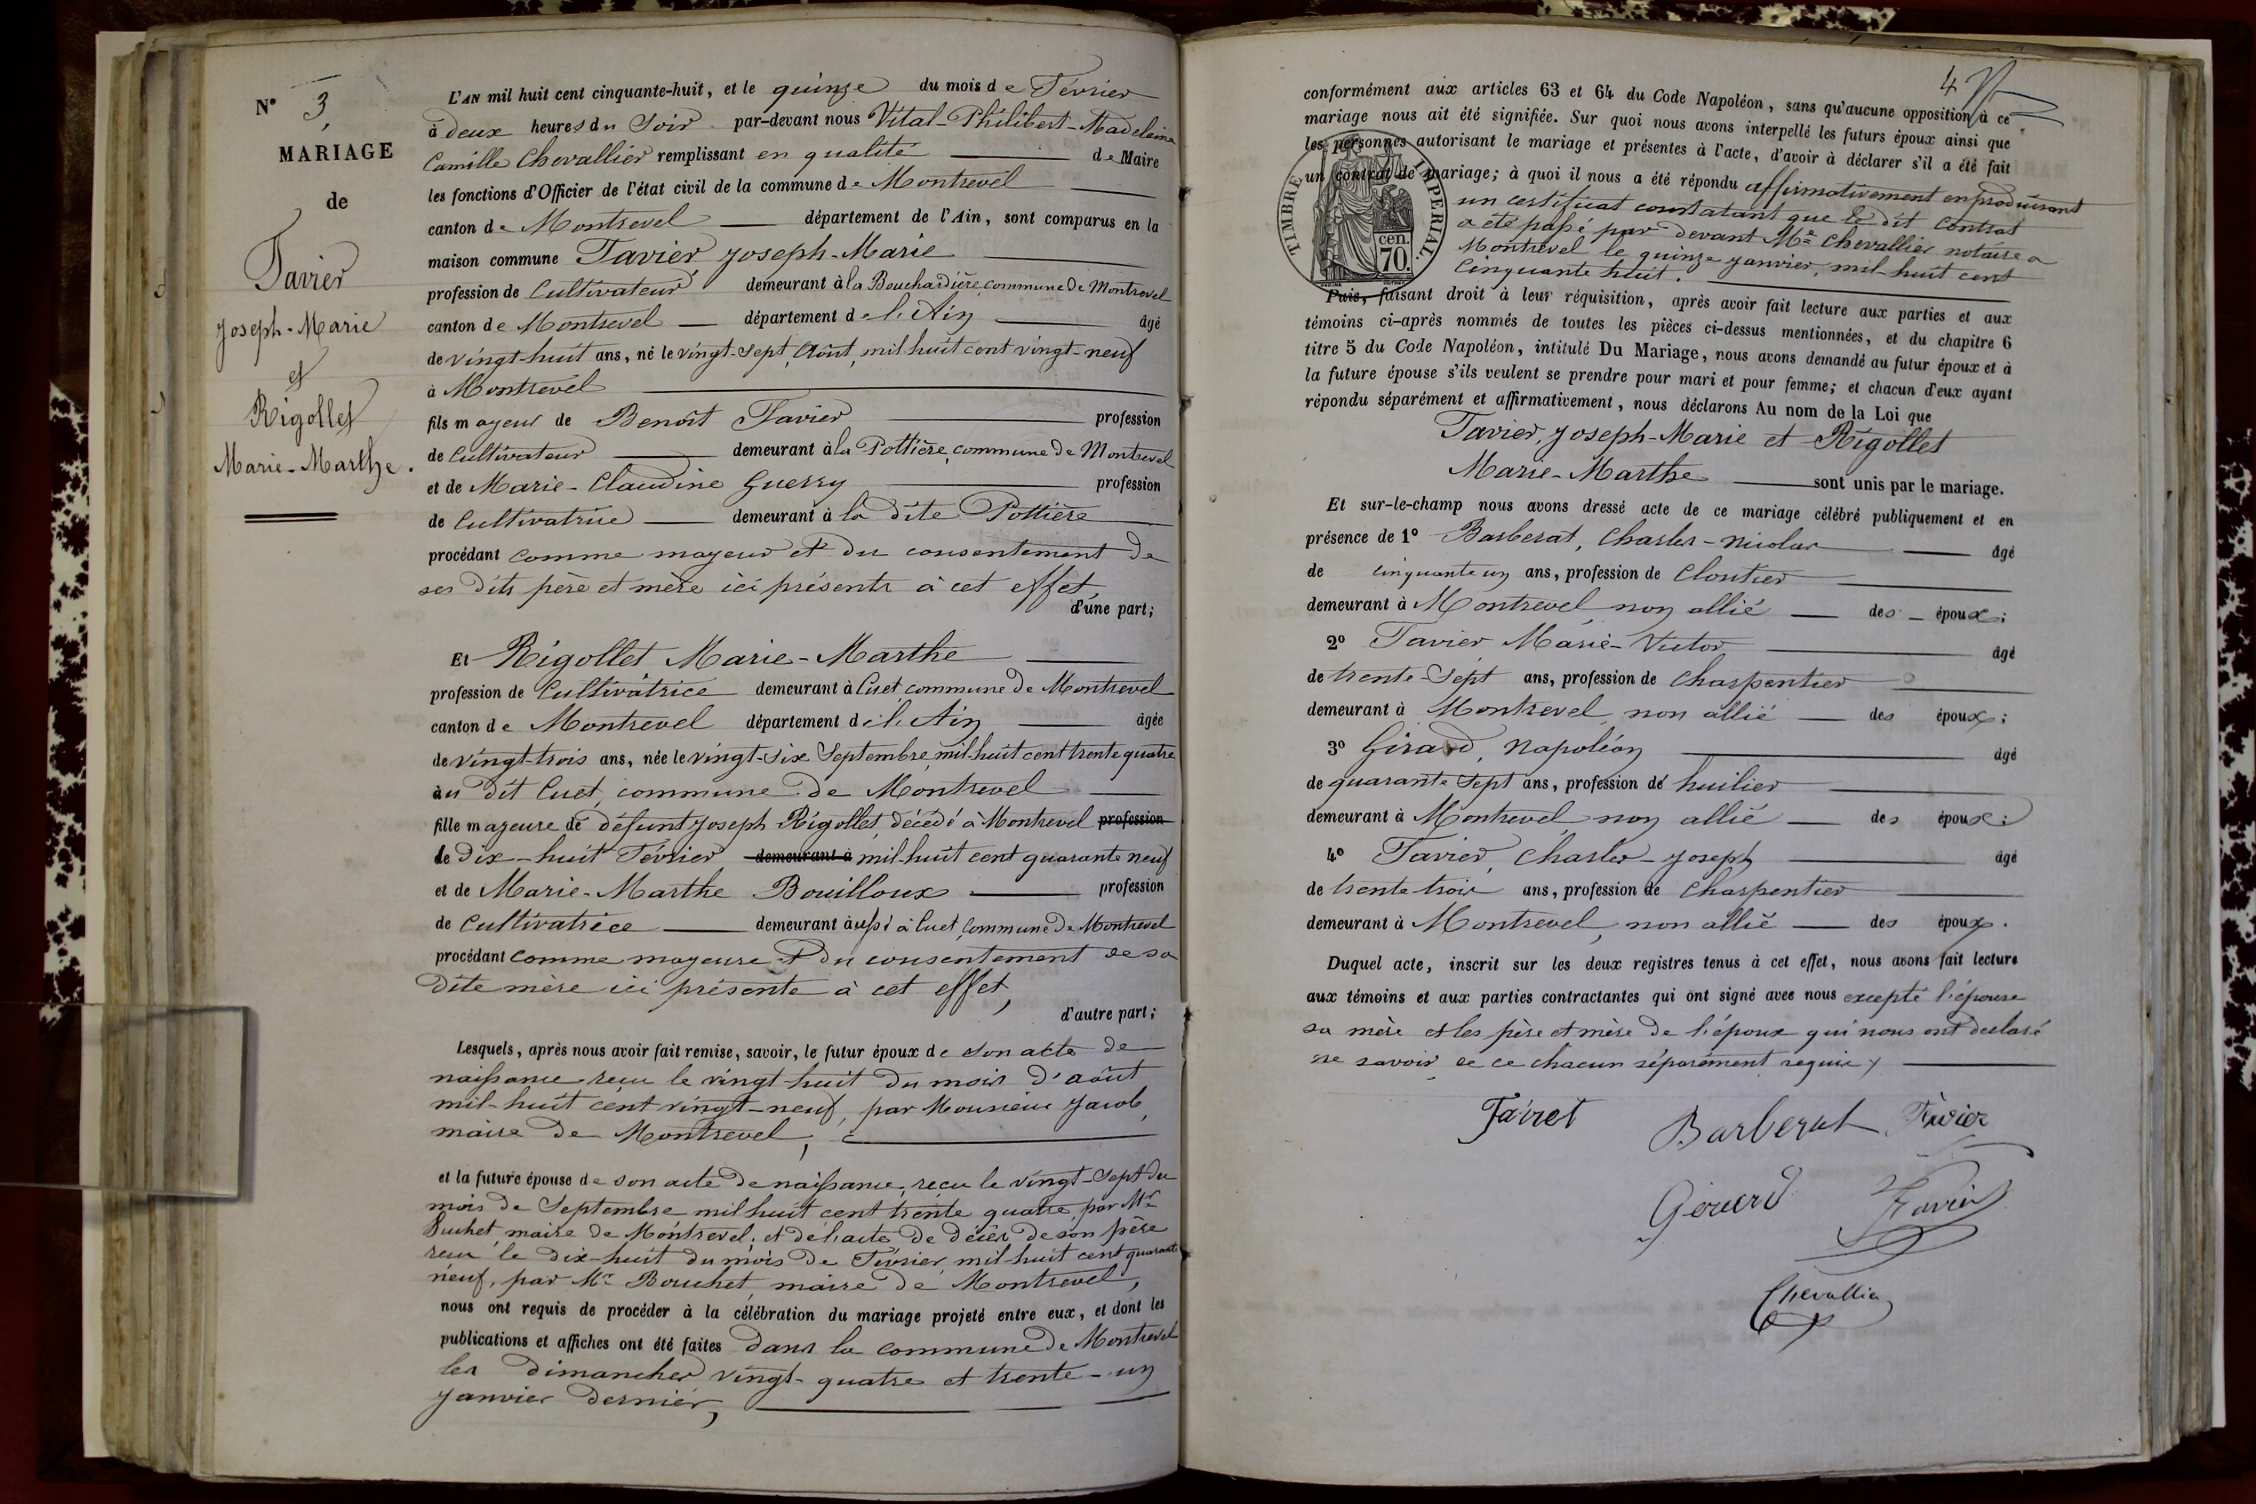 N° 3,
MARIAGE
de
Favier
Joseph-Marie
et
Rigollet
Marie-Marthe.
L'AN mil huit cent cinquante-huit, et le quinze du mois de Février
à deux heures du Soir par-devant nous Vital-Philibert-Madelaine
Camille Chevallier remplissant en qualité de Maire
les fonctions d'Officier de l'état civil de la commune de Montrevel
canton de Montrevel département de l'Ain, sont comparus en la
maison commune Favier Joseph-Marie
profession de Cultivateur demeurant à la Bouchardière, commune de Montrevel
canton de Montrevel département de l'Ain âgé
de vingt-huit ans, né le vingt-sept Août mil huit cent vingt-neuf
à Montrevel
fils mayeur de Benoît Favier profession
de Cultivateur demeurant à la Pottière, commune de Montrevel
et de Marie-Claudine Guerry profession
de Cultivatrice demeurant à la dite Pottière
procédant comme mayeur et du consentement de
ses dits père et mère ici présents à cet effet,
d'une part;
Et Rigollet Marie-Marthe
profession de Cultivatrice demeurant à Cuet commune de Montrevel
canton de Montrevel département de l'Ain âgée
de vingt-trois ans, née le vingt-six Septembre mil-huit cent trente quatre
au dit Cuet, commune de Montrevel
fille mayeure de défunt Joseph Rigollet, décédé à Montrevel profession
le dix-huit Février demeurant à mil-huit cent quarante neuf
et de Marie-Marthe Bouilloux profession
de Cultivatrice demeurant aussi à Cuet, commune de Montrevel
procédant comme mayeure et du consentement de sa
dite mère ici présente à cet effet,
d'autre part;
Lesquels, après nous avoir fait remise, savoir, le futur époux de son acte de
naissance reçu le vingt-huit du mois d'août
mil-huit cent vingt-neuf, par Monsieur Jacob,
maire de Montrevel,
et la future épouse de son acte de naissance, reçu le vingt-sept du
mois de Septembre mil huit cent trente quatre, par Mr
Buchet, maire de Montrevel; et de l'acte de décès de son père
reçu le dix-huit du mois de Février mil-huit cent quarante
neuf, par Mr Bouchet, maire de Montrevel,
nous ont requis de procéder à la célébration du mariage projeté entre eux, et dont les
publications et affiches ont été faites dans la commune de Montrevel
les dimanches vingt-quatre et trente-un
Janvier dernier,
4
conformément aux articles 63 et 64 du Code Napoléon, sans qu'aucune opposition à ce
mariage nous ait été signifiée. Sur quoi nous avons interpellé les futurs époux ainsi que
les personnes autorisant le mariage et présentes à l'acte, d'avoir à déclarer s'il a été fait
un contrat de mariage; à quoi il nous a été répondu affirmativement en produisant
un certificat constatant que le dit Contrat
a été passé par devant Me Chevallier notaire a
Montrevel le quinze janvier, mil-huit cent
Cinquante huit.
TIMBRE IMPERIAL.
70 cen.
Puis, faisant droit à leur réquisition, après avoir fait lecture aux parties et aux
témoins ci-après nommés de toutes les pièces ci-dessus mentionnées, et du chapitre 6
titre 5 du Code Napoléon, intitulé Du Mariage, nous avons demandé au futur époux et à
la future épouse s'ils veulent se prendre pour mari et pour femme; et chacun d'eux ayant
répondu séparément et affirmativement, nous déclarons Au nom de la Loi que
Favier, Joseph-Marie et Rigollet
Marie-Marthe sont unis par le mariage.
Et sur-le-champ nous avons dressé acte de ce mariage célébré publiquement et en
présence de 1° Barberat, Charles-Nicolas âgé
de cinquante un ans, profession de Cloutier
demeurant à Montrevel, non allié des époux;
2° Favier Marie-Victor âgé
de trente-sept ans, profession de Charpentier
demeurant à Montrevel, non allié des époux;
3° Girard, Napoléon âgé
de quarante-sept ans, profession de huilier
demeurant à Montrevel, non allié des époux;
4° Favier, Charles-Joseph âgé
de trente-trois ans, profession de Charpentier
demeurant à Montrevel, non allié des époux.
Duquel acte, inscrit sur les deux registres tenus à cet effet, nous avons fait lecture
aux témoins et aux parties contractantes qui ont signé avec nous excepté l'épouse
sa mère et les père et mère de l'époux qui nous ont déclaré
ne savoir de ce chacun séparément requis
Barberat Favier
Favier
Chevallier